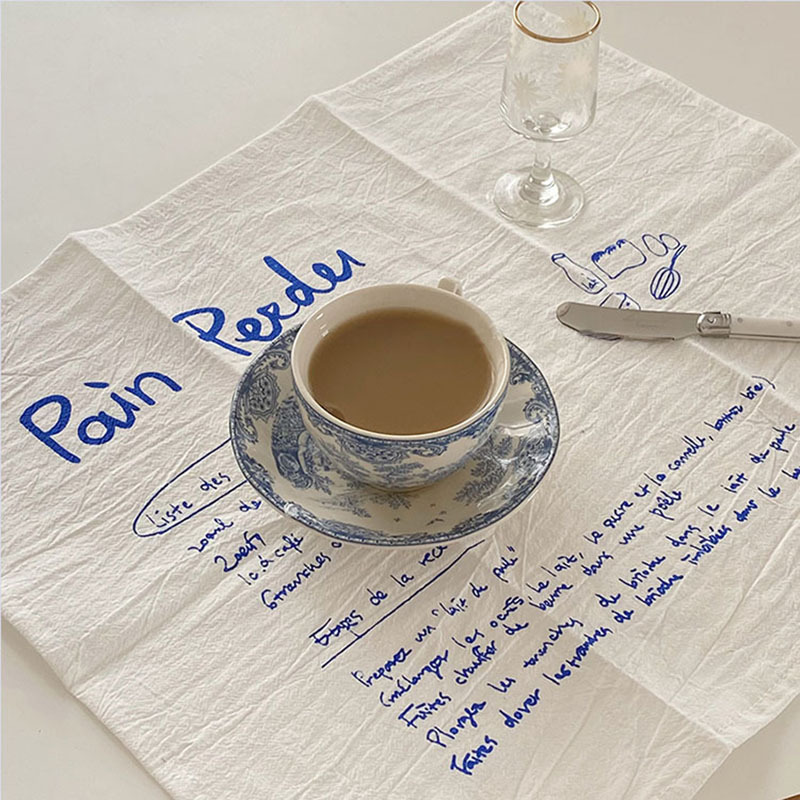 Pain Perdu
Liste des
200ml de
2 oeufs
1c. à café
6 tranches
Etapes de la rec
Préparez un "lait de poule"
(mélanger les oeufs, le lait, le sucre et la cannelle, battre bien)
Faites chauffer de beurre dans une poêle
Plongez les tranches de brioche dans le lait de poule
Faites dorer les tranches de brioche imbibées dans le